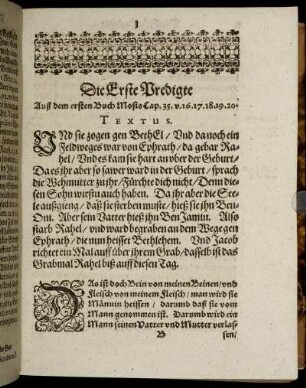 1
Die Erste Predigte
Auß dem ersten Buch Mosis Cap. 35. v. 16. 17. 18. 19. 20.
TEXTUS.
VNd sie zogen gen BethEl / Vnd da noch ein
Feldweges war von Ephrath / da gebar Ra-
hel / Vnd es kam sie hart an vber der Geburt /
Da es jhr aber so sawer ward in der Geburt / sprach
die Wehmutter zu jhr / Fürchte dich nicht / Denn diesen
Sohn wirstu auch haben. Da jhr aber die See-
le außgieng / daß sie sterben muste / hieß sie jhn Ben-
Oni. Aber sein Vatter hieß jhn BenJamin. Also
starb Rahel / vnd ward begraben an dem Wege gen
Ephrath / die nun heisset Bethlehem. Vnd Jacob
richtet ein Mal auff vber jhrem Grab / dasselb ist das
Grabmal Rahel biß auff diesen Tag.
DAs ist doch Bein von meinen Beinen / vnd
Fleisch von meinem Fleisch / man wird sie
Männin heissen / darumb daß sie vom
Mann genommen ist. Darumb wird ein
Mann seinen Vatter vnd Mutter verlas-
B
sen /